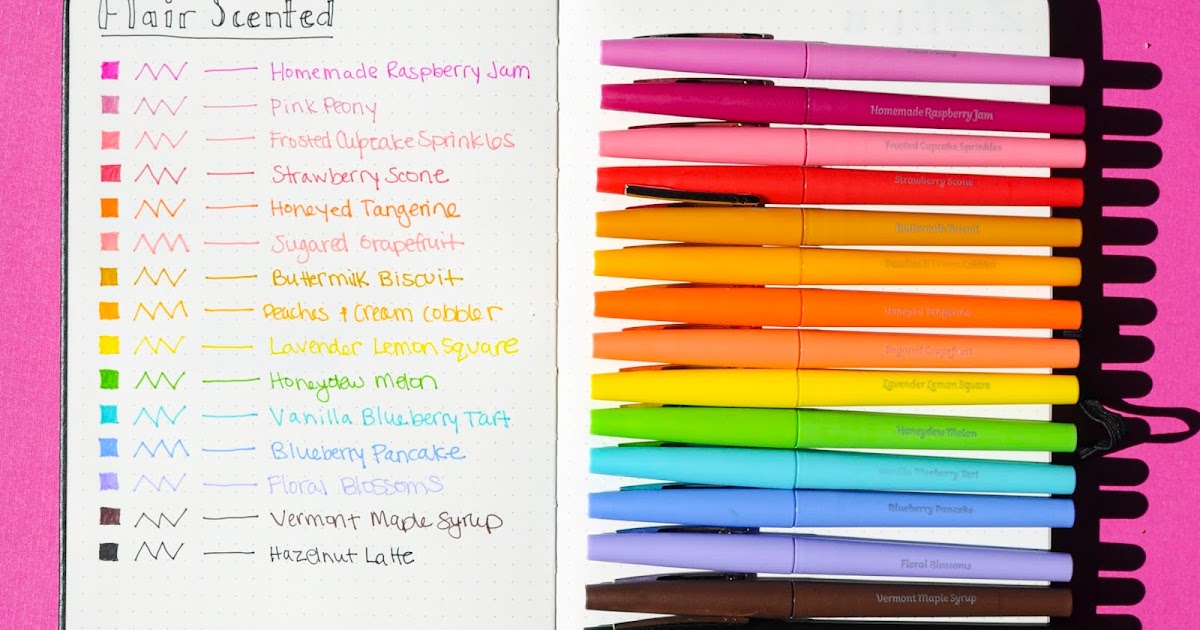 Flair Scented
Homemade Raspberry Jam
Pink Peony
Frosted Cupcake Sprinkles
Strawberry Scone
Honeyed Tangerine
Sugared Grapefruit
Buttermilk Biscuit
Peaches & Cream Cobbler
Lavender Lemon Square
Honeydew Melon
Vanilla Blueberry Tart
Blueberry Pancake
Floral Blossoms
Vermont Maple Syrup
Hazelnut Latte
Homemade Raspberry Jam
Frosted Cupcake Sprinkles
Strawberry Scone
Buttermilk Biscuit
Peaches & Cream Cobbler
Honeyed Tangerine
Sugared Grapefruit
Lavender Lemon Square
Honeydew Melon
Vanilla Blueberry Tart
Blueberry Pancake
Floral Blossoms
Vermont Maple Syrup